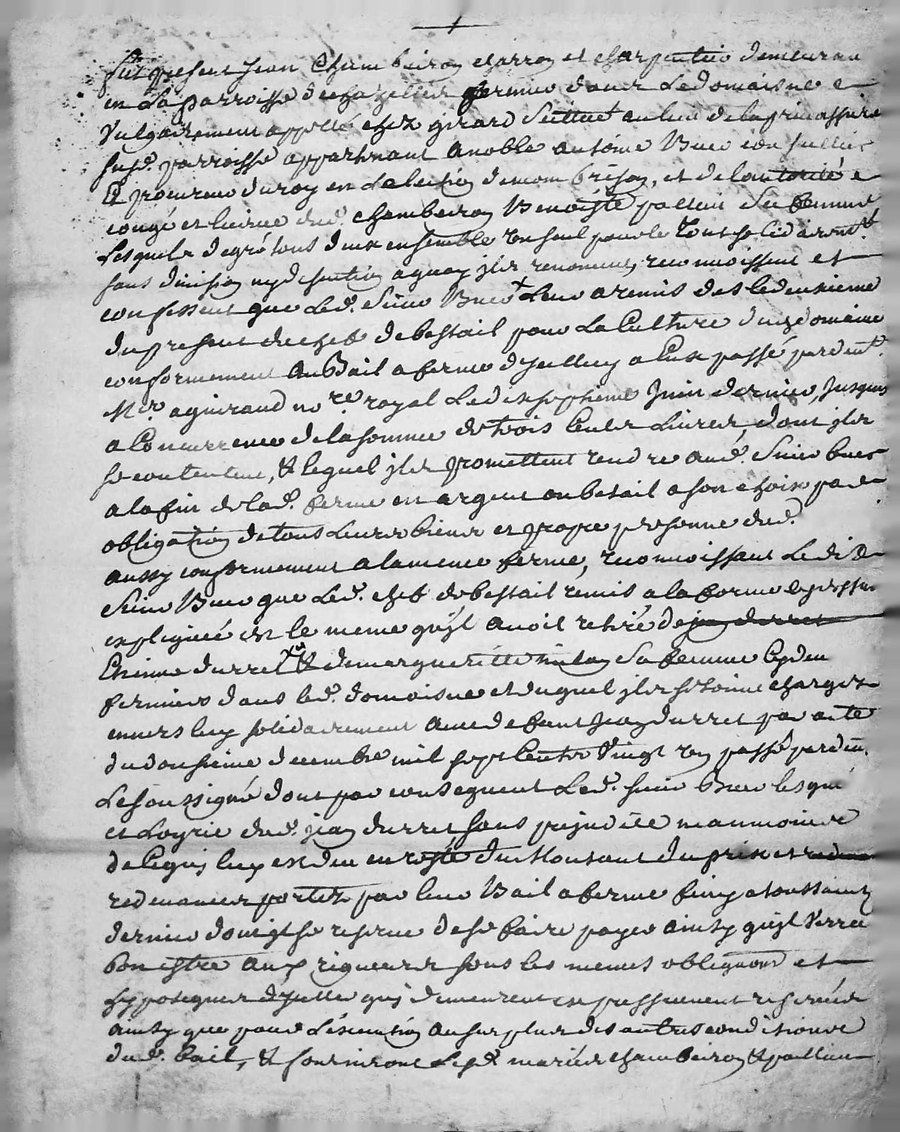 fut present Jean Chambeiron charron et charpentier demeurant
en La parroisse de chazelles fermier dans Le domaisne
Vulgairement appellé chez girard scittué au lieu de
susd. parroisse appartenant a noble antoine Buer conseiller
et procureur du roy en Lelection de montbrison, et de Lautorité
congé et licence dud. chambeiron Benoiste pallien sa femme
Lesquels de gré tous deux ensemble un seul pour le Tout solidairemt.
sans division ny discution a quoy jls renoncent, reconnoissent et
confessent que Led. Sieur Buer Leur a remis des le deuxieme
du present du chef de bestail pour La Culture dud. domaine
conformement Au Bail a ferme d'jcelluy a Eux passé pardvt.
Mr. aguiraud nore. royal Le dixseptieme Juin dernier, Jusques
a Concurrence de la somme de trois Cents Livres, dont jls
se contentent, & lequel jls promettent rendre aud. Sieur buer
a la fin de lad. ferme en argent ou betail a son choix par
obligation de tous Leurs biens et propre personne dud.
aussy conformement a la mesme ferme, reconnoissant Ledit
Sieur Buer que Led. chef de bestail remis a la forme cy dessus
expliquée est le meme qu'jl avoit retiré de
Etienne durret & de margueritte sa femme Cy dev.
fermiers dans led. domaisne et duquel jls s'etoint chargez
envers luy solidairement avec defunt Jean durret par acte
du douzieme decembre mil sept Cents Vingt un passé pardvt.
Le soussigné dont par consequent Led. sieur Buer les quitte
et dud. jean durret sans prejudice neanmoins
de ce qui luy est deu en reste du Montant du prix et
redevances portez par leur Bail a ferme finy a toussaint
dernier dont jl se reserve de se faire payer Ainsy qu'jl verra
Bon estre Aux rigueurs sous les memes obligaons et
hyppoteques d'jcelle quj demeurent expressement reservées
ainsy que pour L'execution au surplus des autres conditions
dud. bail, & fourniront Lesd. mariés chambeiron & pallien